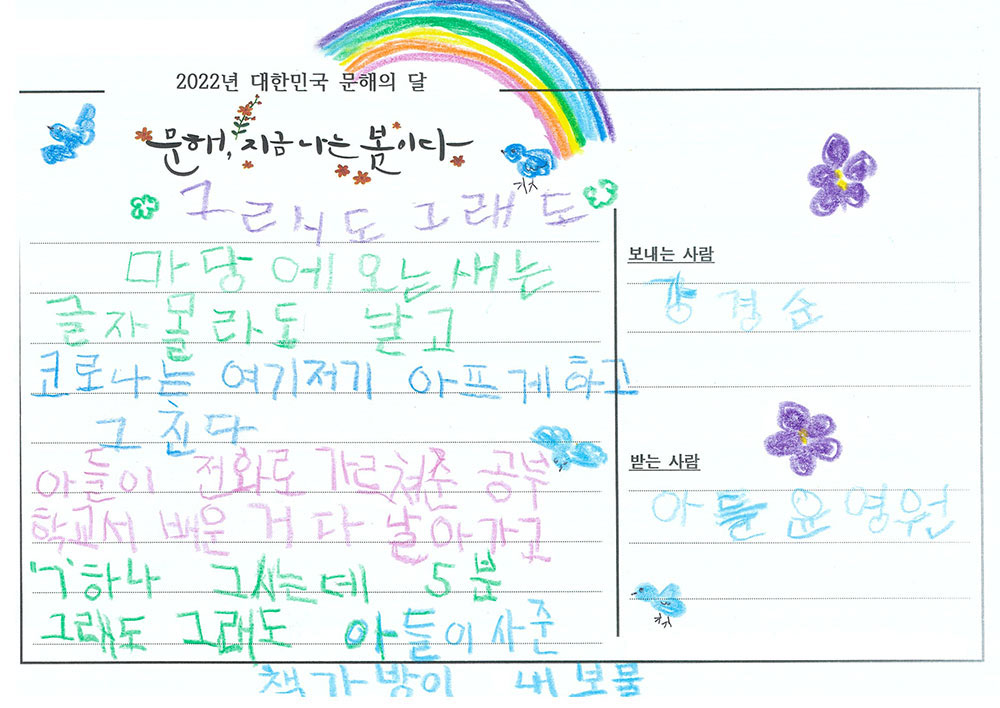 2022년 대한민국 문해의 달
문해, 지금 나는 봄이다
그래도 그래도
마당에 오는새는
글자몰라도 날고
코로나는 여기저기 아프게하고
그친다
아들이 전화로 가르쳐준 공부
학교서 배운 거 다 날아가고
'ㄱ'하나 그시는데 5분
그래도 그래도 아들이사준
책가방이 내보물
보내는 사람
강경순
받는 사람
아들 윤영원